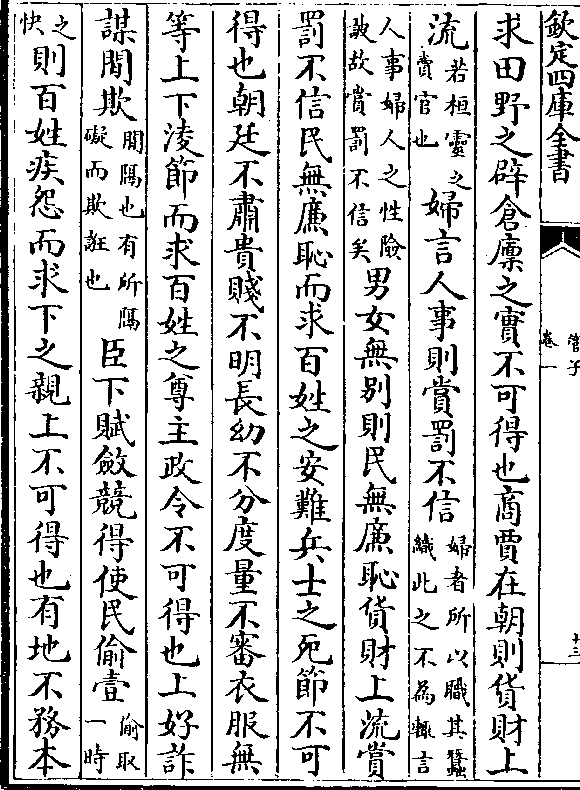 欽定四庫全書
管子
卷一
求田野之辟倉廩之實不可得也商賈在朝則貨財上
流若桓靈之賣官也婦言人事則賞罰不信婦者所以職其蠶織此之不為輒言
人事婦人之性險詖故賞罰不信矣男女無別則民無廉恥貨財上流賞
罰不信民無廉恥而求百姓之安難兵士之死節不可
得也朝廷不肅貴賤不明長幼不分度量不審衣服無
等上下淩節而求百姓之尊主政令不可得也上好詐
謀閒欺閒隔也有所隔礙而欺誑也臣下賦斂競得使民偷壹偷取一時
之快則百姓疾怨而求下之親上不可得也有地不務本